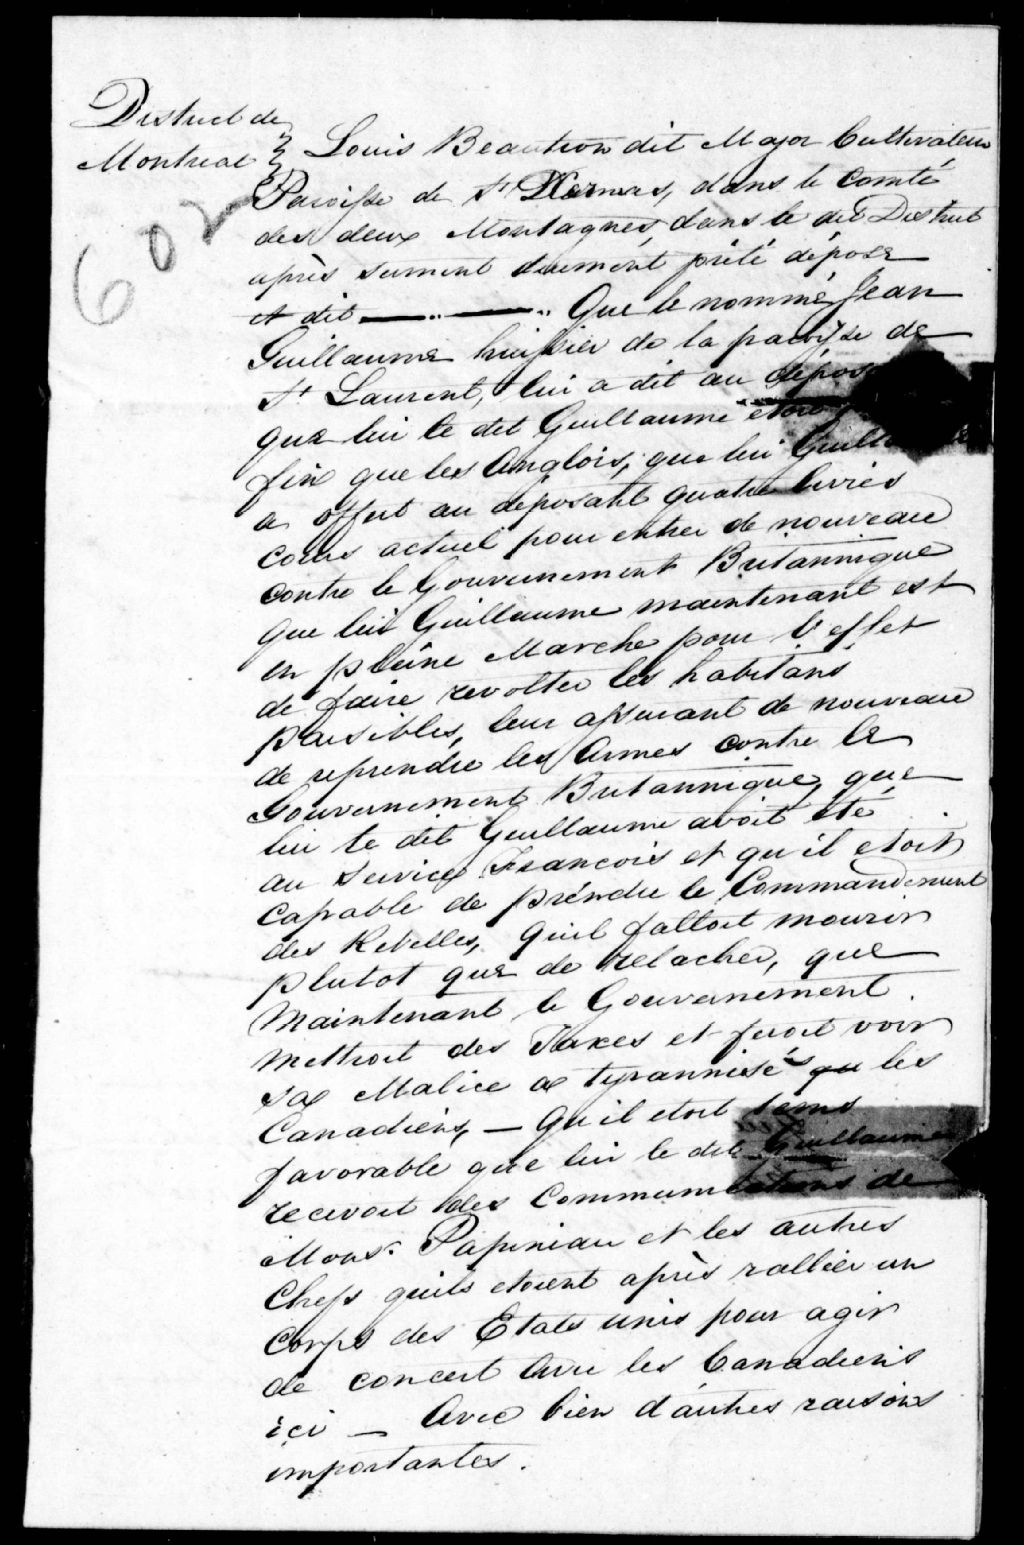 District de
Montreal
602
Louis Beautron dit Major Cultivateur
Paroisse de St Hermas, dans le Comté
des deux Montagnes, dans le dit District
après serment duement prêté dépose
et dit ——.. ——.. Que le nommé Jean
Guillaume huissier de la paroisse de
St Laurent, lui a dit au
que lui le dit Guillaume etoit
fin que les Anglois, que lui
a offert au déposant quatre livres
cours actuel pour entrer de nouveau
contre le Gouvernement Britannique
que lui Guillaume maintenant est
en pleine Marche pour l'effet
de faire revolter les habitans
paisibles, leur assurant de nouveau
de reprendre les Armes contre le
Gouvernement Britannique, que
lui le dit Guillaume avoit été
au service Francois et qu'il etoit
capable de prendre le Commandement
des Rebelles, qu'il falloit mourir
plutot que de relacher, que
Maintenant le Gouvernement
mettroit des Taxes et feroit voir
sa Malice a tyrannisé les
Canadiens, — Qu'il etoit tems
favorable que lui le dit Guillaume
recevoit des Communications de
Monsr Papineau et les autres
Chefs quils etoient après rallier un
Corps des Etats unis pour agir
de concert avec les Canadiens
ici — Avec bien d'autres raisons
importantes.